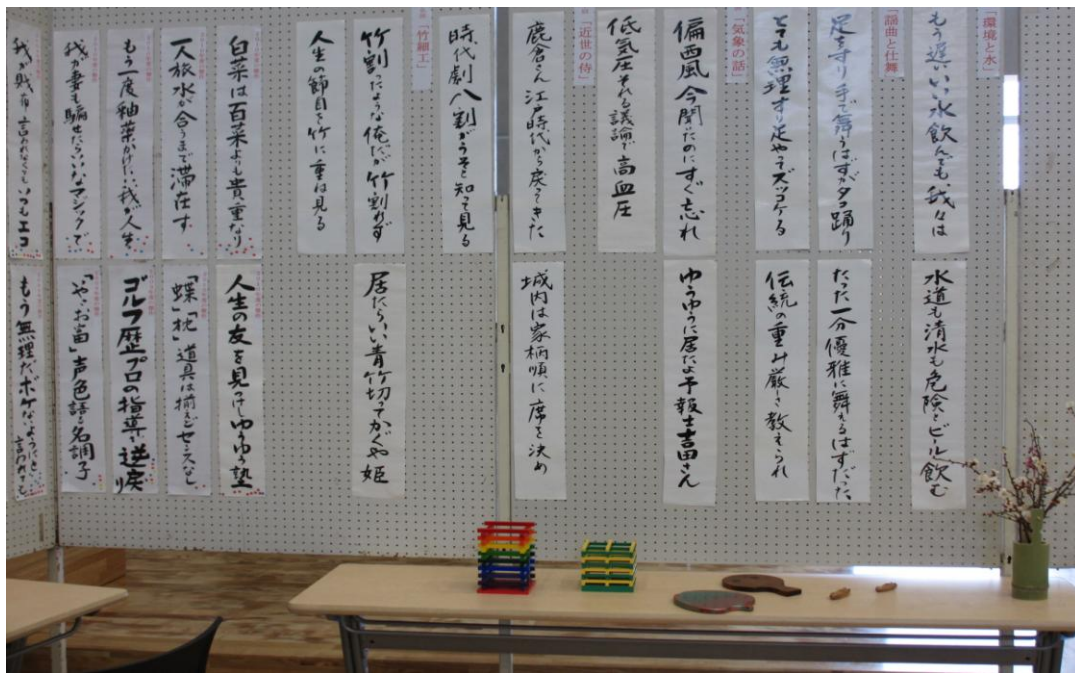 「環境と水」
もう遅いいい水飲んでも我々は
水道も清水も危険とビール飲む
「謡曲と仕舞」
足を守り手で舞うはずがタコ踊り
とても無理すり足やってズッケる
たった一分優雅に舞えるはずだった
伝統の重み厳しさ教えられ
「気象の話」
偏西風今聞いたのにすぐ忘れ
低気圧それる議論で高血圧
ゆうゆうに居たよ予報士吉田さん
「近世の侍」
鹿倉さん江戸時代から戻ってきた
時代劇八割がうそと知って見る
城内は家柄順に席を決め
「竹細工」
竹割ったような俺だが竹割れず
人生の節目を竹に重ね見る
居たらいい青竹切ってかぐや姫
白菜は百菜よりも貴重なり
一人旅水が合うまで滞在す
もう一度釉薬かけたい我が人生
我が妻も騙せたらいいなマジックで
我が財布言われなくてもいつもエコ
人生の友を見つけしゆうゆう塾
「蝶」「枕」道具は揃えどセンスなし
ゴルフ歴プロの指導で逆戻り
「やっお富」声色語る名調子
もう無理だボケないようにと言われても